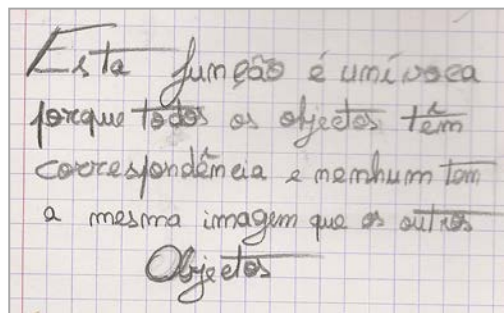 Esta função é unívoca
porque todos os objectos têm
correspondência e nenhum tem
a mesma imagem que os outros
Objectos